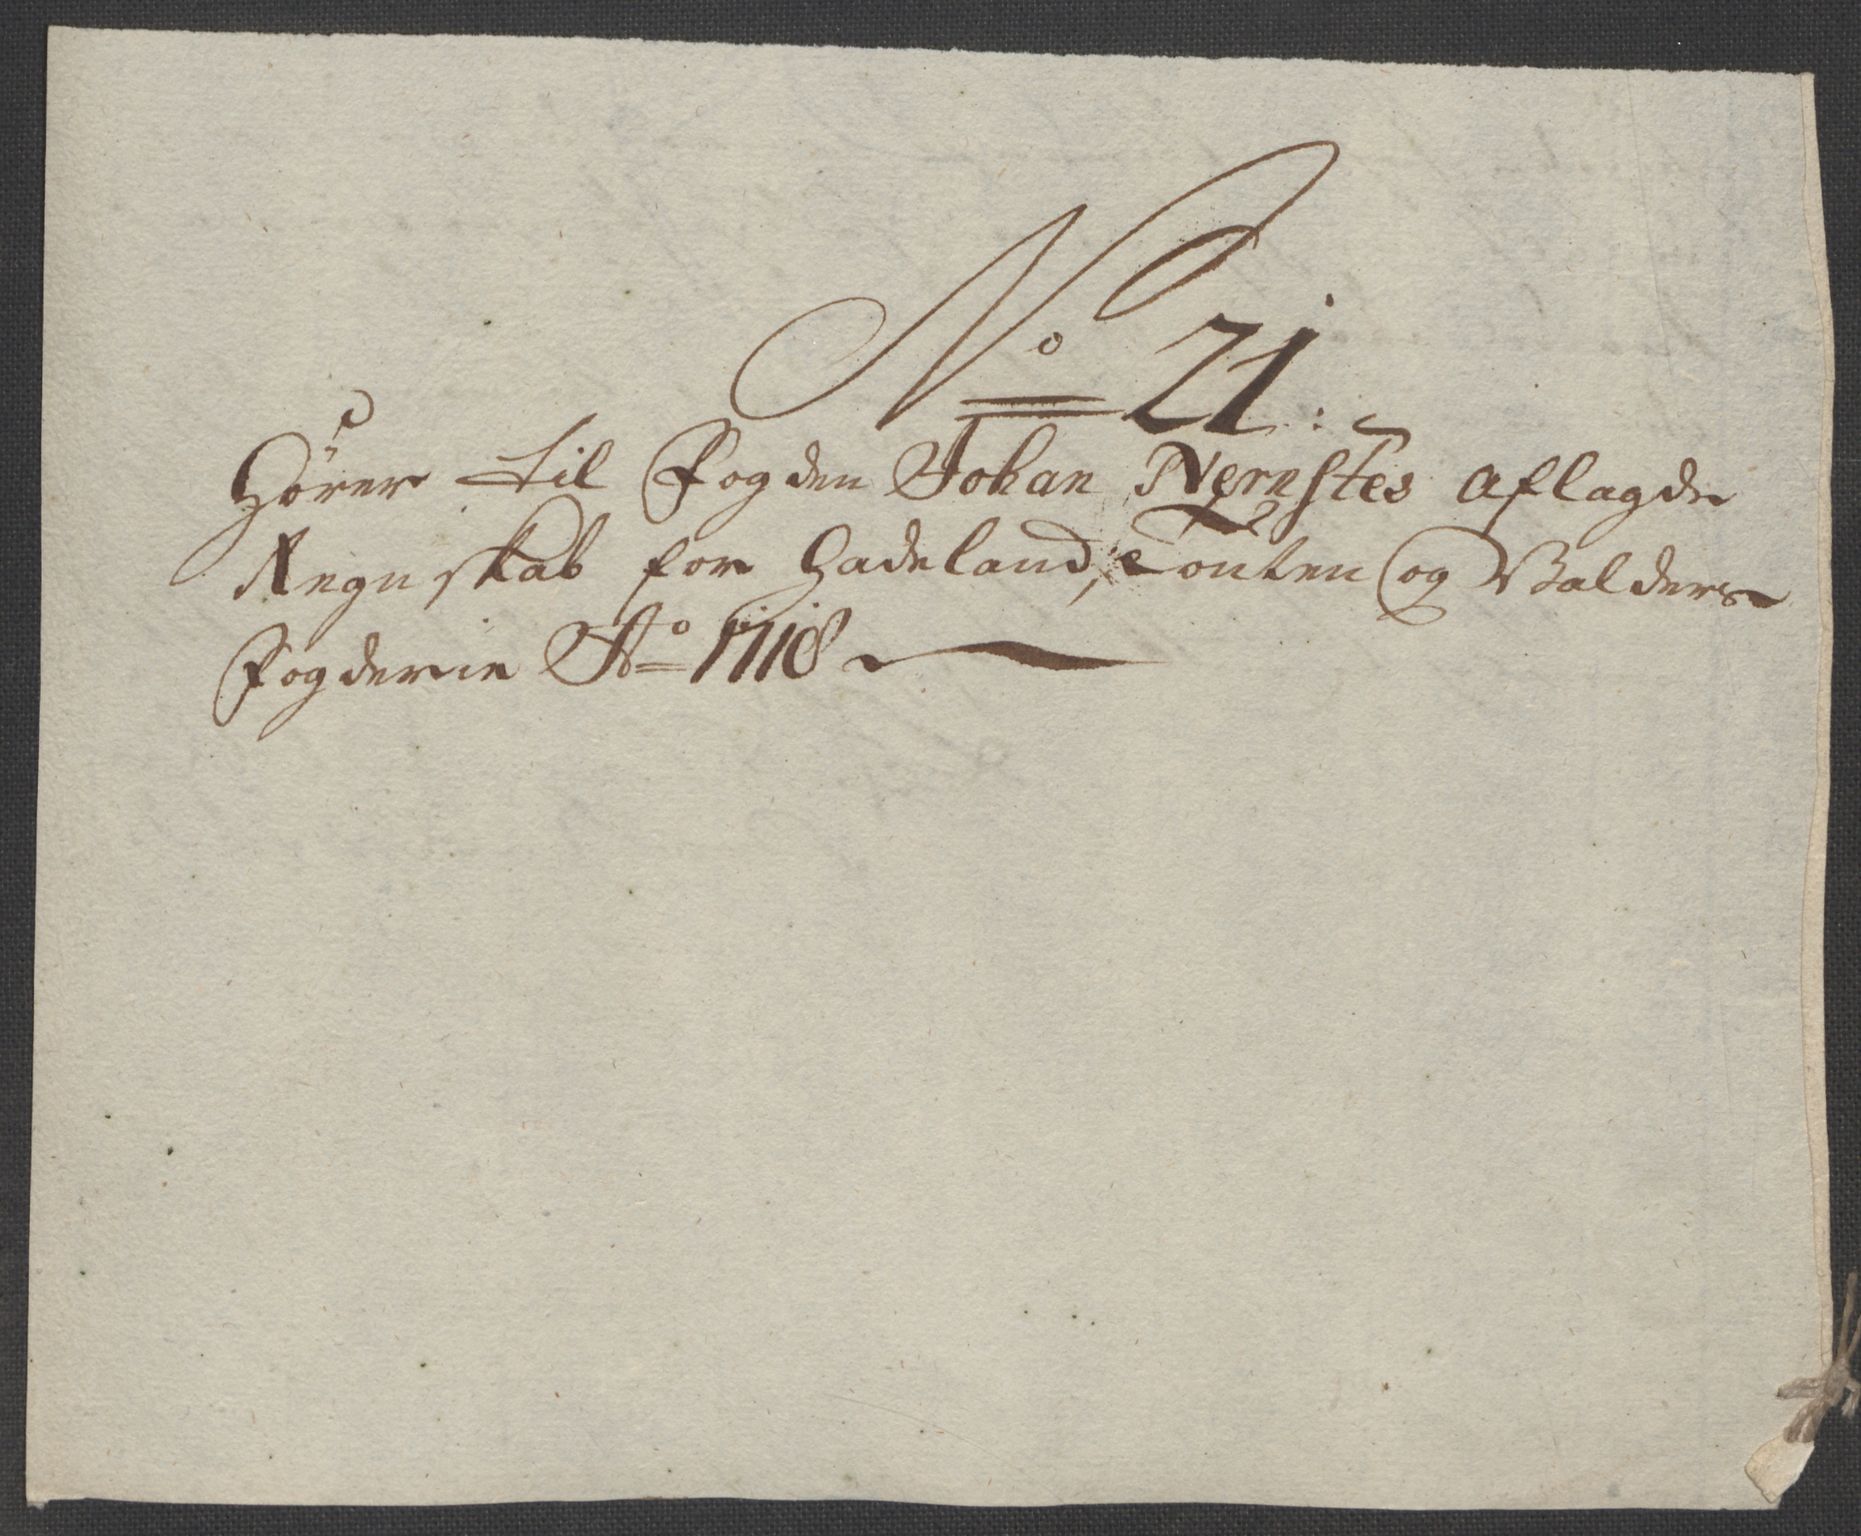 No 21:
Hører til Fogden Johan Nernstes aflagde
Regnskab for Hadeland, Tonten og Valders
Fogderie Ao 1718